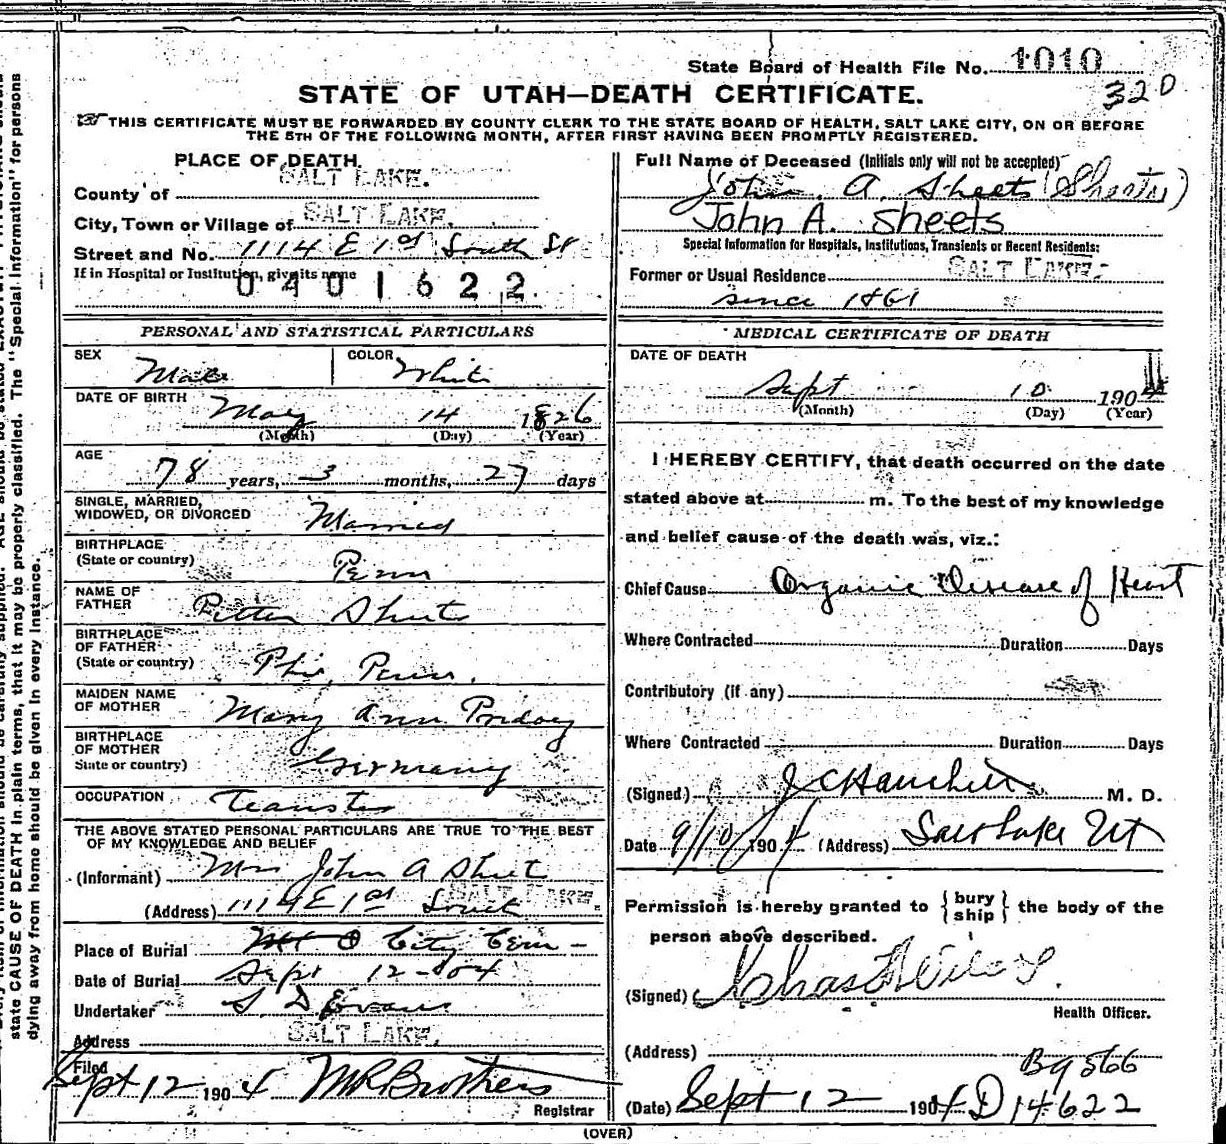 State Board of Health File No. 1010
320
STATE OF UTAH—DEATH CERTIFICATE.
THIS CERTIFICATE MUST BE FORWARDED BY COUNTY CLERK TO THE STATE BOARD OF HEALTH, SALT LAKE CITY, ON OR BEFORE
THE 5TH OF THE FOLLOWING MONTH, AFTER FIRST HAVING BEEN PROMPTLY REGISTERED.
PLACE OF DEATH.
County of SALT LAKE.
City, Town or Village of SALT LAKE.
Street and No. 1114 E 1st South St
If in Hospital or Institution, give its name
0401622
PERSONAL AND STATISTICAL PARTICULARS
SEX Male COLOR White
DATE OF BIRTH May 14 1826
(Month) (Day) (Year)
AGE 78 years, 3 months, 27 days
SINGLE, MARRIED,
WIDOWED, OR DIVORCED Married
BIRTHPLACE
(State or country) Penn
NAME OF
FATHER Sheets
BIRTHPLACE
OF FATHER
(State or country) Phi, Penn.
MAIDEN NAME
OF MOTHER Mary Ann
BIRTHPLACE
OF MOTHER
State or country) Germany
OCCUPATION Teamster
THE ABOVE STATED PERSONAL PARTICULARS ARE TRUE TO THE BEST
OF MY KNOWLEDGE AND BELIEF
(Informant) Mrs John A Sheet
(Address) 1114 E 1st South SALT LAKE.
Place of Burial City Cem -
Date of Burial Sept 12-04
Undertaker S. D Evans
Address SALT LAKE.
Filed
Sept 12 1904 M R Brothers
Registrar
Full Name of Deceased (Initials only will not be accepted)
John A. Sheets (Sheets)
John A. Sheets
Special Information for Hospitals, Institutions, Transients or Recent Residents:
Former or Usual Residence SALT LAKE.
since 1861
MEDICAL CERTIFICATE OF DEATH
DATE OF DEATH
Sept 10 1904
(Month) (Day) (Year)
I HEREBY CERTIFY, that death occurred on the date
stated above at m. To the best of my knowledge
and belief cause of the death was, viz.:
Chief Cause Organic Disease of Heart
Where Contracted Duration Days
Contributory (if any)
Where Contracted Duration Days
(Signed) J C Hanchett M. D.
Date 9/10/1904 (Address) Salt Lake Ut
Permission is hereby granted to {bury
ship} the body of the
person above described.
(Signed) Chas
Health Officer.
(Address)
B 9 566
(Date) Sept 12 1904 D 14622
(OVER)
state CAUSE OF DEATH in plain terms, that it may be properly classified. The "Special Information" for persons
dying away from home should be given in every instance.